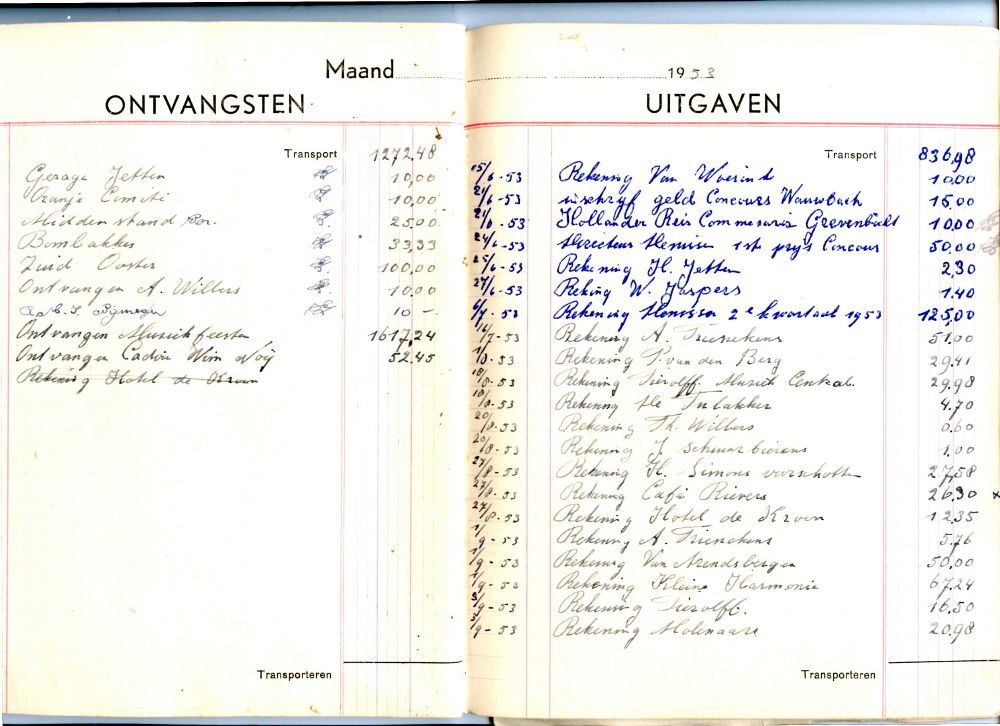 Maand
ONTVANGSTEN
Transport 1272,48
Garage Jetten 10,00
Oranje Comité 10,00
Middenstand Bor. 25,00
Bombakkes 33,33
Zuid Ooster 100,00
Ontvangen A. Willers 10,00
Nijmegen 10 -
Ontvangen Muziekfeesten 1617,24
Ontvangen Cadou Wim Nöy 52,45
Rekening Hotel de Kroon
Transporteren
1953
UITGAVEN
Transport 836,98
15/6-53 Rekening Van 10,00
21/6-53 inschryf geld Concours Wanrobach 15,00
21/6-53 Hollander Reis Commesaris Grevenbicht 10,00
24/6-53 Directeur Henissen 1st prys Concour 50,00
25/6-53 Rekening H. Jetten 2,30
27/6-53 Reking W. Jaspers 1.40
6/7-53 Rekening Henissen 2e kwartaal 1953 125,00
/7-53 Rekening A. Trienekens 51,00
1/8-53 Rekening P. van den Berg 29,41
18/8-53 Rekening Tierolff Muziek Central. 29,98
18/8-53 Rekening 4.70
20/8-53 Rekening Th. Willers 0,60
20/8-53 Rekening J. 1,00
27/8-53 Rekening H. Simons 27,58
27/8-53 Rekening Café Rievers 26,30 x
27/8-53 Rekening Hotel de Kroon 12,35
1/9-53 Rekening A. Trienekens 5,76
1/9-53 Rekening Van Arendsbergen 50,00
1/9-53 Rekening Klein Harmonie 67,24
3/9-53 Rekening Tierolff. 16,50
3/9-53 Rekening Molenaars 20,98
Transporteren